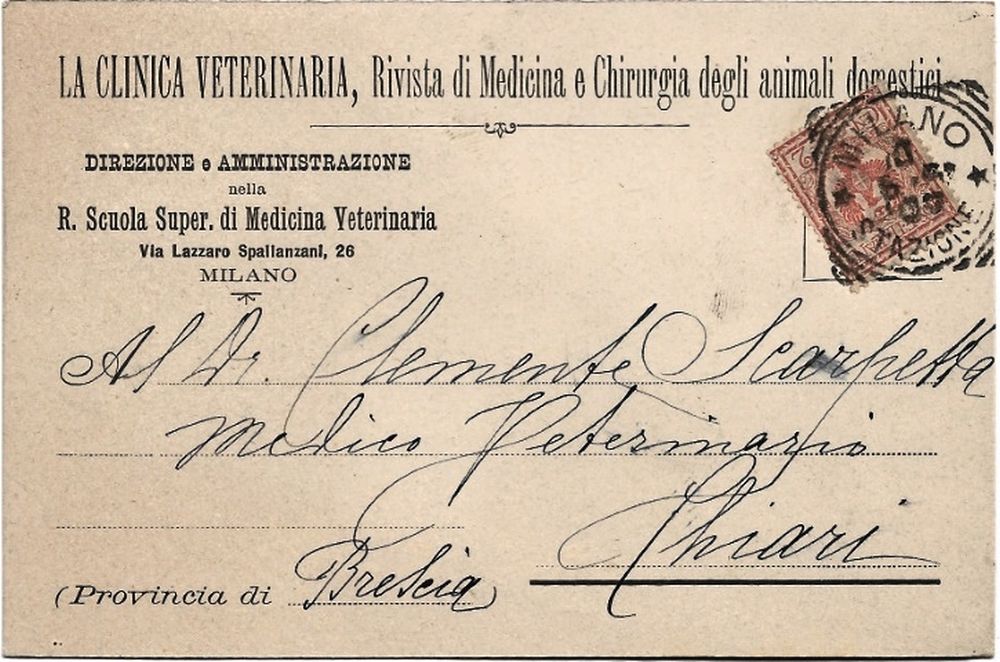 LA CLINICA VETERINARIA, Rivista di Medicina e Chirurgia degli animali domestici
DIREZIONE e AMMINISTRAZIONE
nella
R. Scuola Super. di Medicina Veterinaria
Via Lazzaro Spallanzani, 26
MILANO
MILANO
STAZIONE
Al Dr. Clemente Scarpetta
Medico Veterinario
Chiari
(Provincia di Brescia)